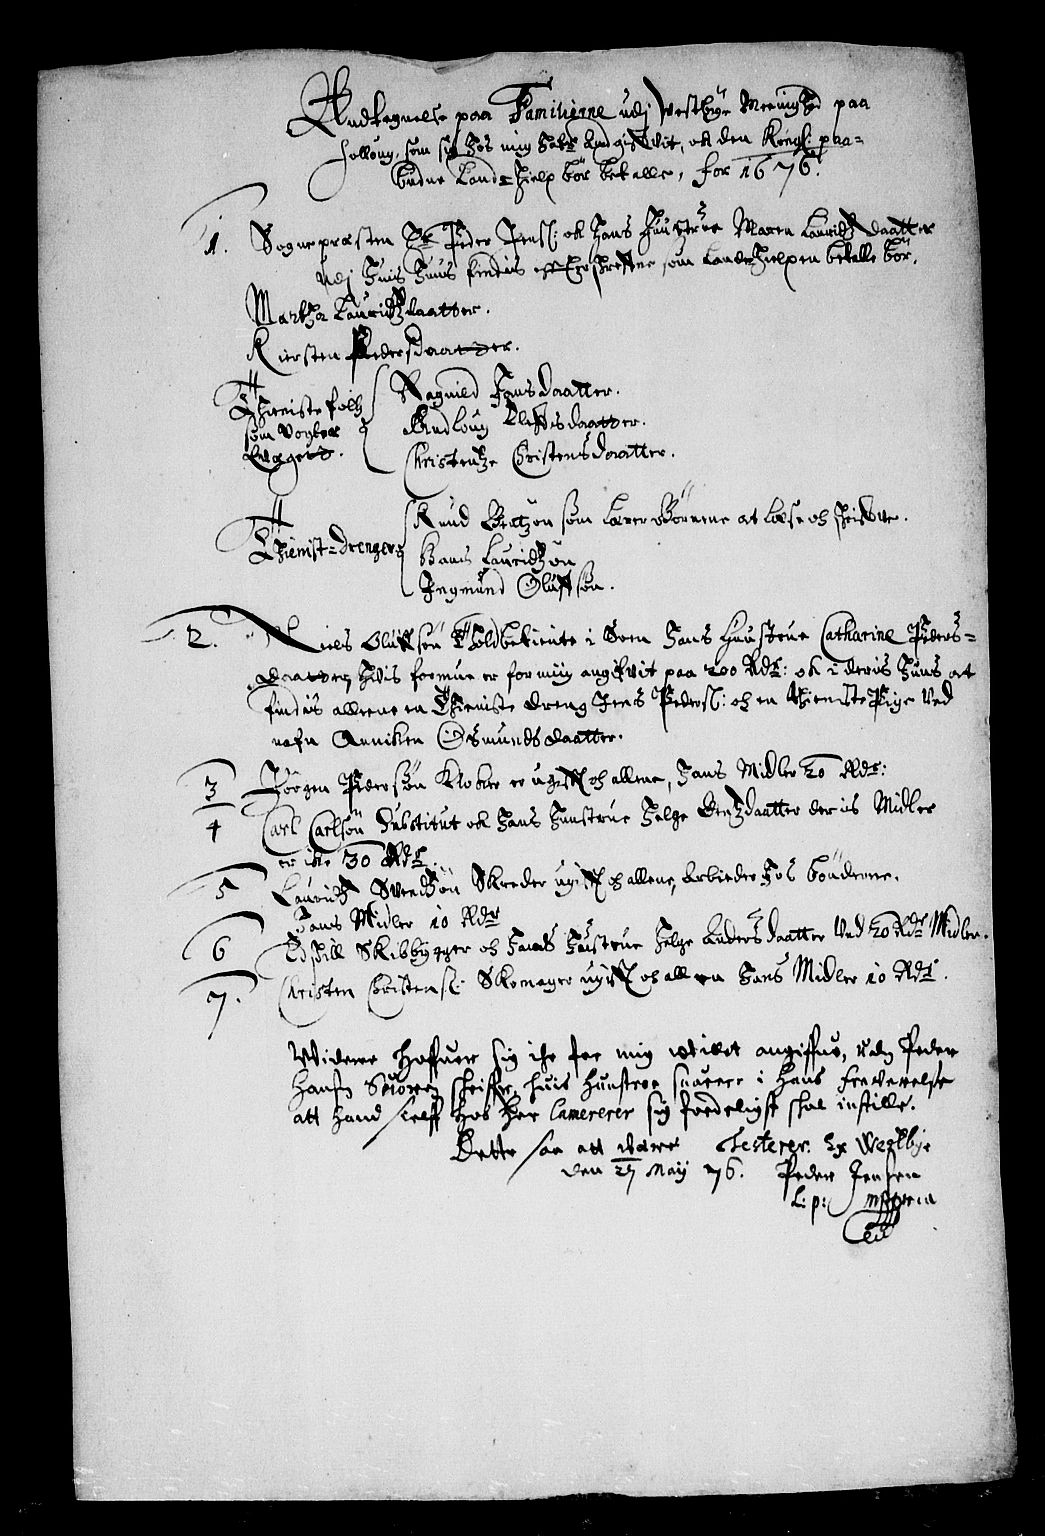 Andtegnelse paa Familierne udj Westbye Meenighed paa
Folloug, som sig hos mig hafr angifvit, ok den Kongl: paa-
budne Lands hielp bør betalle, for 1676.
1. Sognepræsten Hr Peder Jens: ok hans Hustrue Maren Lauridtz daatter
udj huis huus findis effterskreffne som Landehielpen betalle bör.
Martha Lauridtzdaatter.
Kiersten Pedersdaatter.
Thienistefolk som
Ragnild Jonsdaatter.
Gudloug Oluffsdaatter.
Christentze Christensdaatter.
Thienist-Drenger
Knud som lærer Börnene at læse oh skrifve.
Hans Lauridtzön
Ingmund Oluffsön.
2. Niels Oluffsön Tholdbetiente i Soen hans Hustrue Catharine Peders-
daatter, hvis formue er for mig angifvit paa 200 Rdr: ok i deris huus at
findis alleene en Thieniste dreng Jens Peders: oh en thienistePige ved
nafn Anniken Osmundsdaatter.
3 Jörgen Pedersön Klokker er ugifft oh allene, hans Midler 20 Rdr:
4 Carl Carlsön Substitut ok hans Hustrue Helge daatter deris Midler
er ike 30 Rdr.
5 Lauridtz Svendsön Skreder ugifft oh allene, arbieder hos bönderne.
hans Midler 10 Rdr
6 Eskild Skibbygger oh hans Hustrue Helge Andersdaatter ved 20 Rdr Midler.
7. Christen Christens: Skomager ugifft oh allen hans Midler 10 Rdr.
Widerre haffuer sig ike for mig angiffue, uden Peder
Hanss skriffr, huis hustroe suarer i hans frauerelse
att hand sielff hos Her Camererer sig forderligst skal instille.
Dette saa att være Testerer. Ex Westbye
den 27 Maij 76. Peder Jensen
L: p: mppria